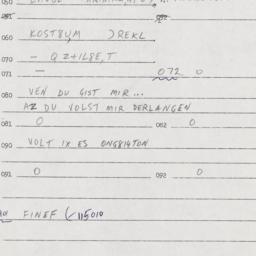 060 KOST8YM )REKL
070 — QZ+IL8E,T
071 — 072 0
080 VEN DU GIST MIR...
AZ DU VOLST MIR DERLANGEN
081 0 082 0
090 VOLT IX ES ONG814TON
091 0 092 0
FINEF